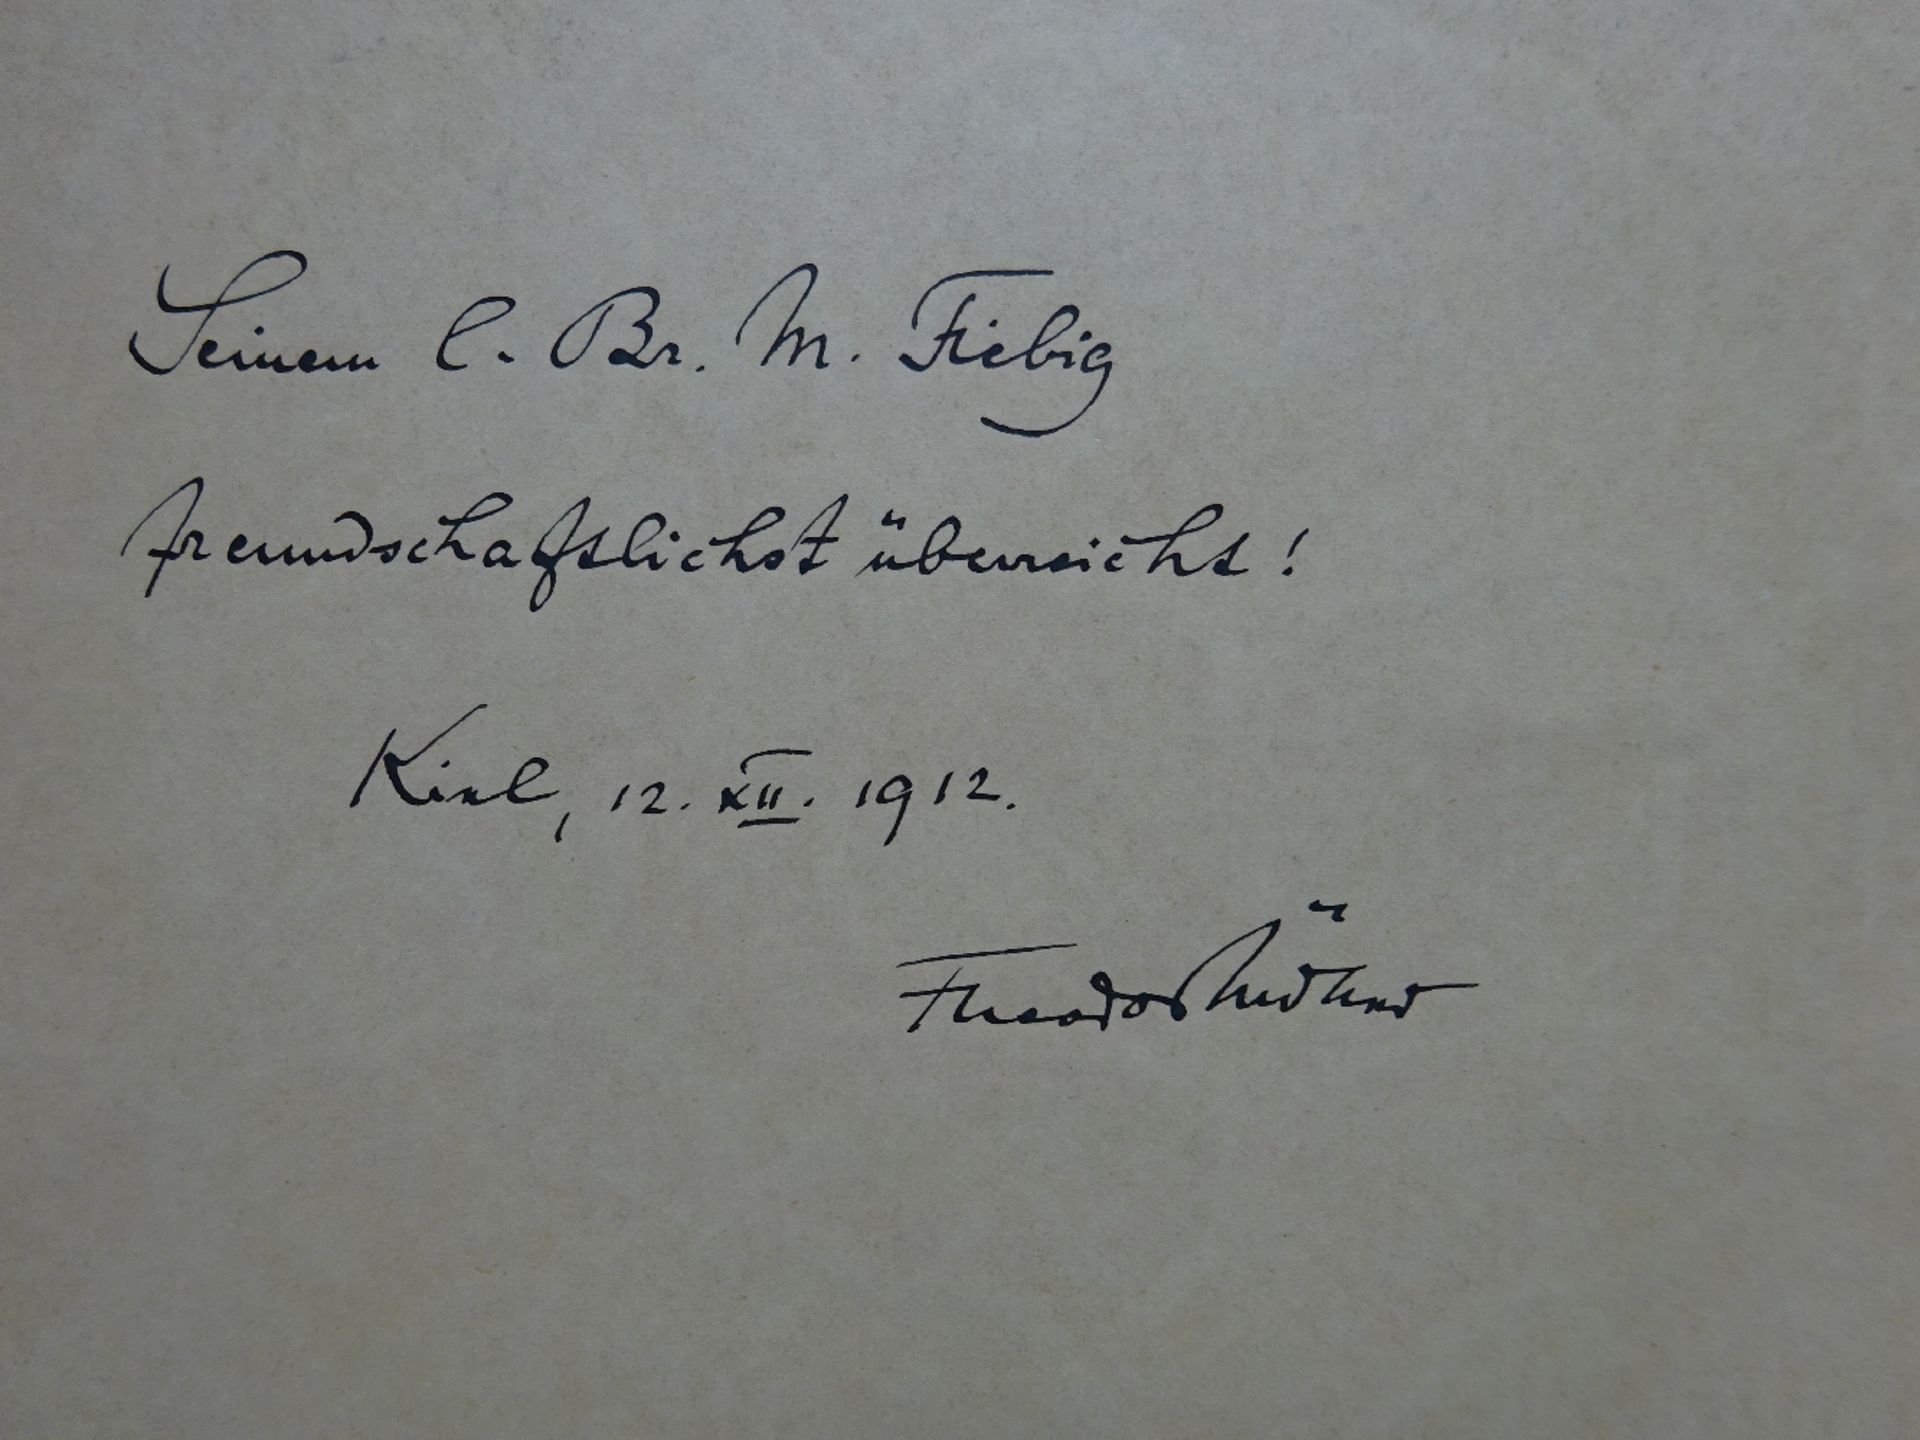 Seinem l. Br. M. Fiebig
freundschaftlichst überreicht!
Kiel, 12. XII. 1912.
Theodor